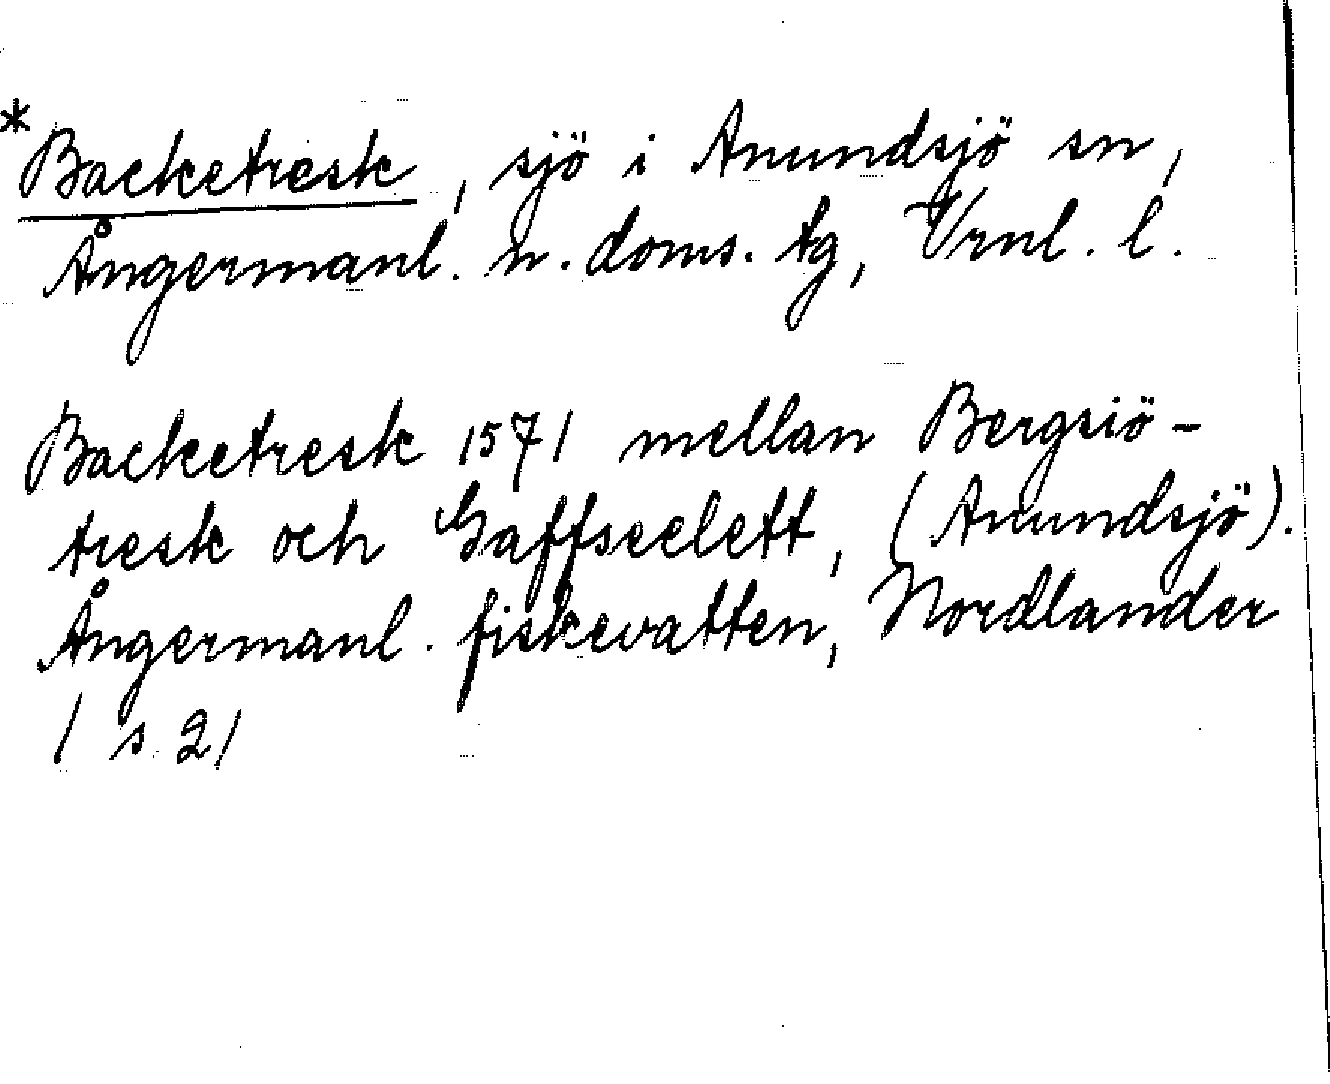 *Backetresk, sjö i Anundsjö sn,
Ångermanl. n. doms. tg, Vrnl. l.
Backetresk 1571 mellan Bergsiö-
tresk och Gaffseelett, (Anundsjö).
Ångermanl. fiskevatten, Nordlander
1 s. 21